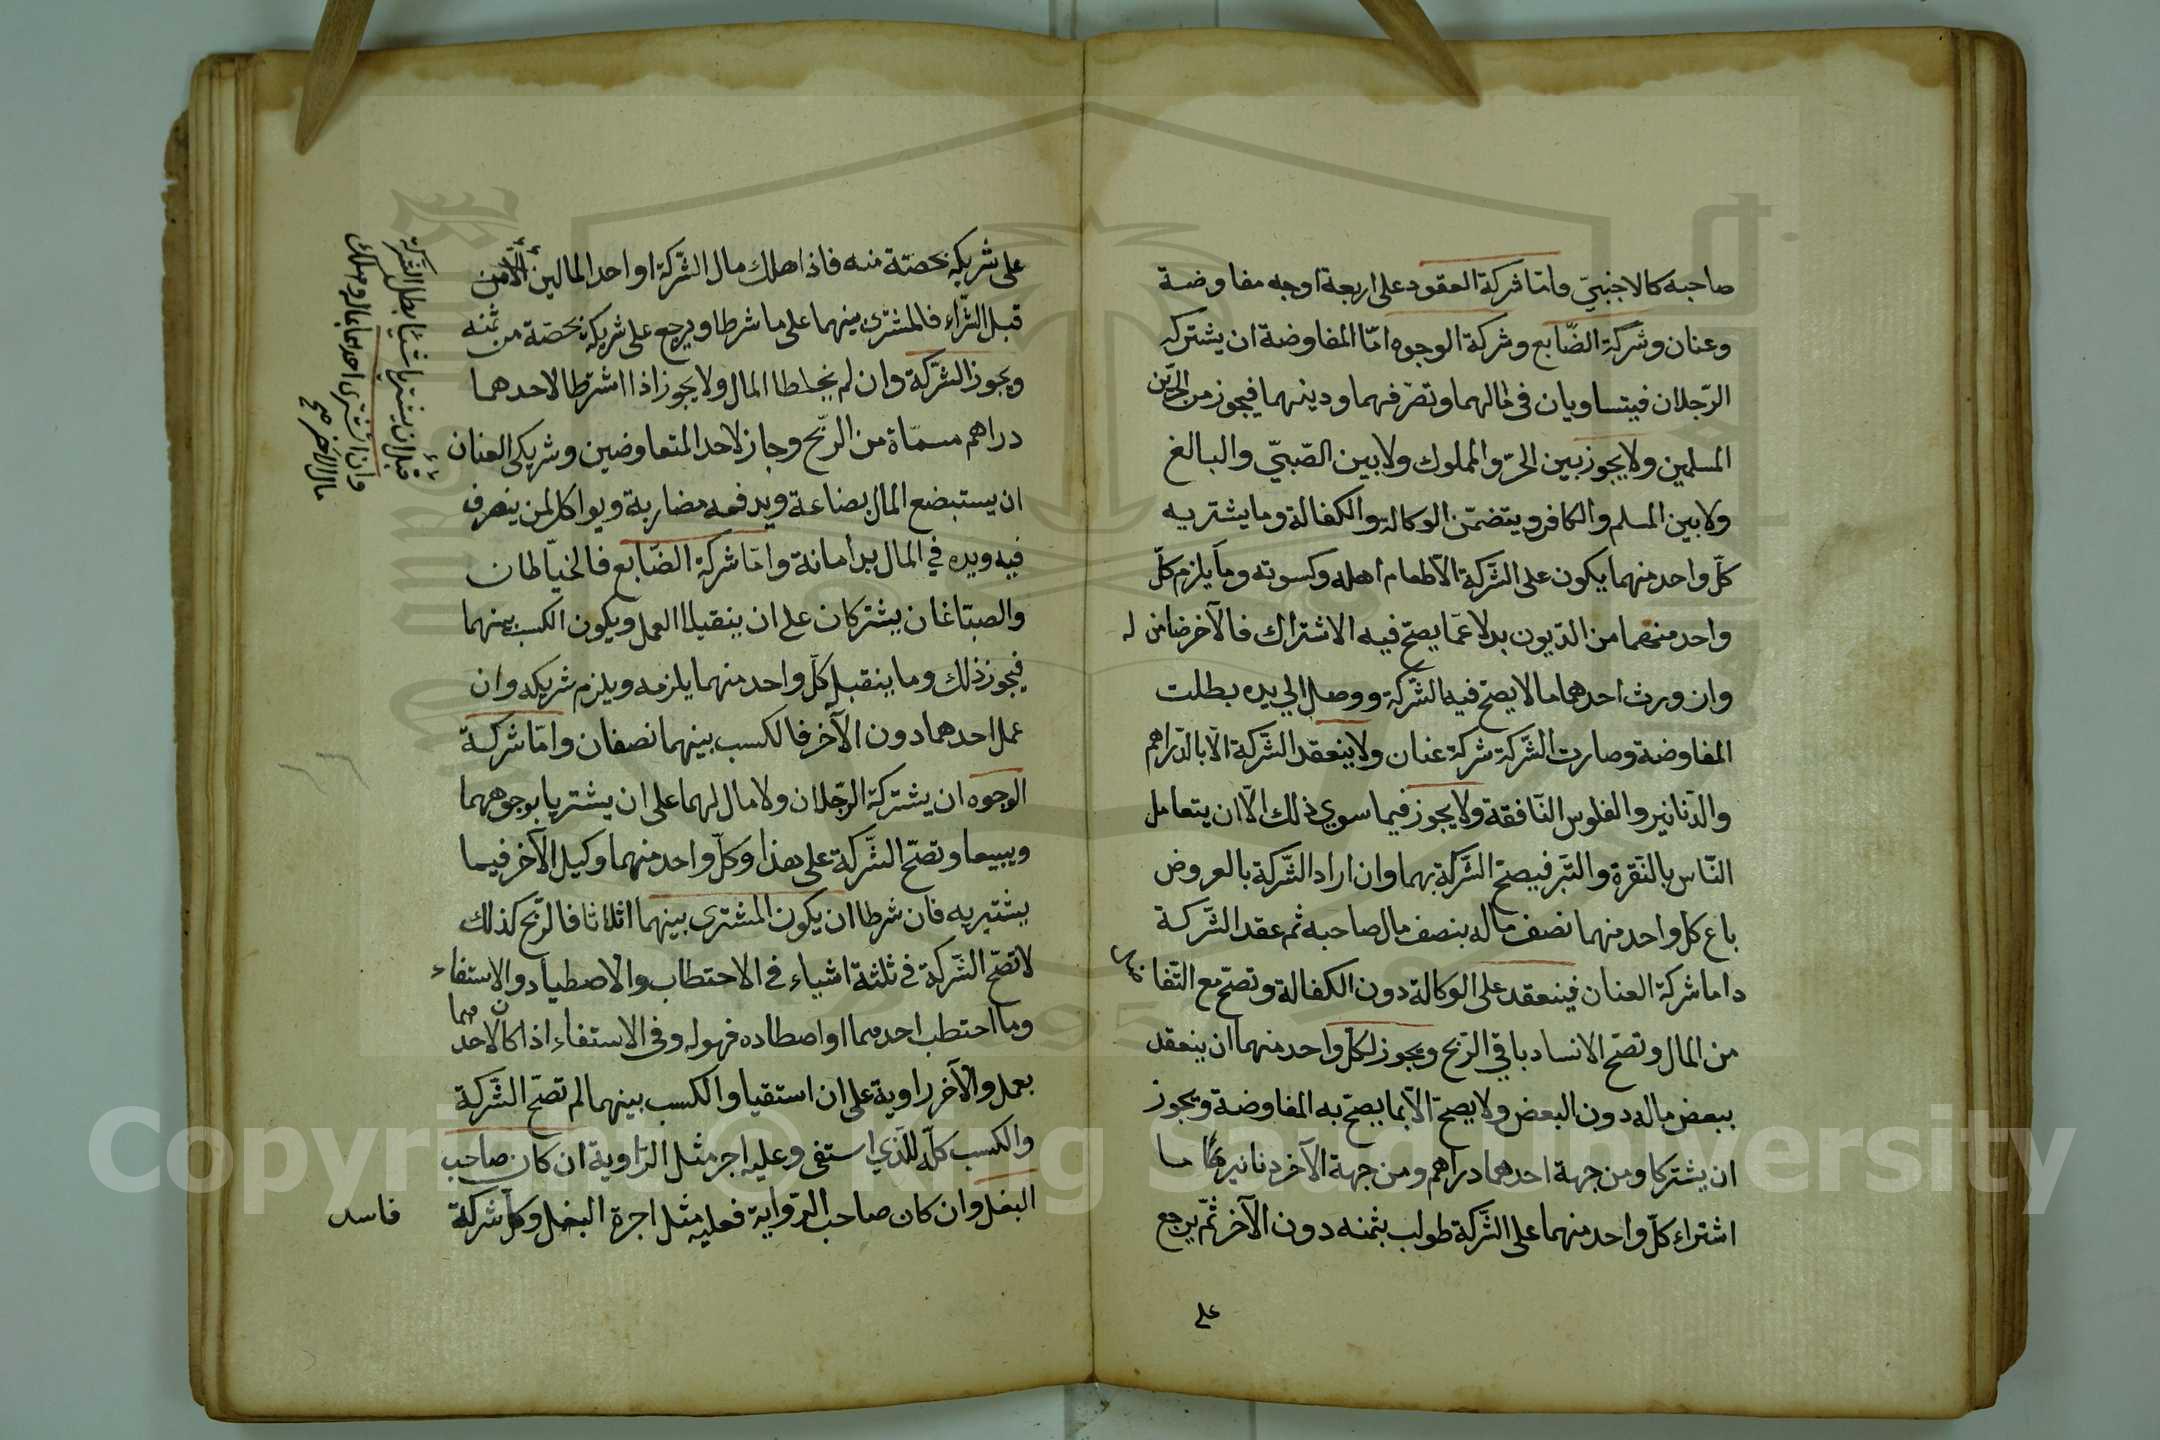 صاحبه كالاجنبيّ وامّا شركة العقود على اربعة اوجه مفاوضة
وعنان وشركة الضّايع وشركة الوجوه امّا المفاوضة ان يشترك
الرّجلان فيتساويان في مالهما وتصرّفهما ودينهما فيجوز من الحرّين
المسلمين ولا يجوز بين الحرّ والمملوك ولا بين الصّبيّ والبالغ
ولا بين المسلم والكافر ويتضمّن الوكالة والكفالة وما يشتريه
كلّ واحد منهما يكون على الشّركة الّا طعام اهله وكسوته وما يلزم كلّ
واحد منهما من الدّيون بدلا عمّا يصحّ فيه الاشتراك فالآخر ضامن له
وان ورث احدهما ما لا يصحّ فيه الشّركة ووصل الي يده بطلت
المفاوضة وصارت الشّركة شركة عنان ولا ينعقد الشّركة الّا بالدّراهم
والدّنانير والفلوس النّافقة ولا يجوز فيما سوي ذلك الّا ان يتعامل
النّاس بالنّقرة والتّبر فيصحّ الشّركة بهما وان اراد الشّركة بالعروض
باع كل واحد منهما نصف ماله بنصف مال صاحبه ثم عقد الشّركة
داما شركة العنان فينعقد على الوكالة دون الكفالة وتصحّ مع التّفاضل
من المال وتصحّ الانساد باقي الرّبح ويجوز لكلّ واحد منهما ان ينعقد
ببعض ماله دون البعض ولا يصحّ الّا بما يصحّ به المفاوضة ويجوز
ان يشتركا ومن جهة احدهما دراهم ومن جهة الآخر دنانير ما
اشتراء كلّ واحد منهما على الشّركة طولب بثمنه دون الآخر ثمّ يرجع
على
على شريكه بحصّته منه فاذا هلك مال الشّركة او احد المالين
قبل الشّراء فالمشترى بينهما على ما شرطا ويرجع على شريكه بحصّة من ثمنه
ويجوز الشّركة وان لم يخلطا المال ولا يجوز اذا اشترطا لاحدهما
دراهم مسمّاة من الرّبح وجاز لاحد المتعاوضين وشريكى العنان
ان يستبضع المال بضاعة ويدفعه مضاربة ويواكل لمن ينصرف
فيه ويده في المال يد امانة وامّا شركة الضّايع فالخيّاطان
والصبّاغان يشتركان على ان يتقبلا العمل ويكون الكسب بينهما
فيجوز ذلك وما يتقبله كلّ واحد منهما يلزمه ويلزم شريكه وان
عمل احدهما دون الآخر فالكسب بينهما نصفان وامّا شركة
الوجوه ان يشترك الرّجلان ولا مال لهما على ان يشتريا بوجوههما
ويبيعا وتصحّ الشّركة على هذا وكلّ واحد منهما وكيل الآخر فيما
يشتريه فان شرطا ان يكون المشترى بينهما اثلاثا فالرّبح كذلك
لا تصحّ الشّركة في ثلثة اشياء في الاحتطاب والاصطياد والاستقاء
وما احتطب احدهما او اصطاده فهو له وفى الاستقاء اذا كان لاحدهما
بعمل والآخر راوية على ان استقيا والكسب بينهما لم تصحّ الشّركة
والكسب كلّه للّذي استقى وعليه اجر مثل الرّاوية ان كان صاحب
البغل وان كان صاحب الرّواية فعليه مثل اجرة البغل وكلّ شركة
فاسد
قبل ان يشتريا شيئا بطل الشّركة
وان اشترى احدهما بماله وهلك
مال الآخر صح
Copyright © King Saud University